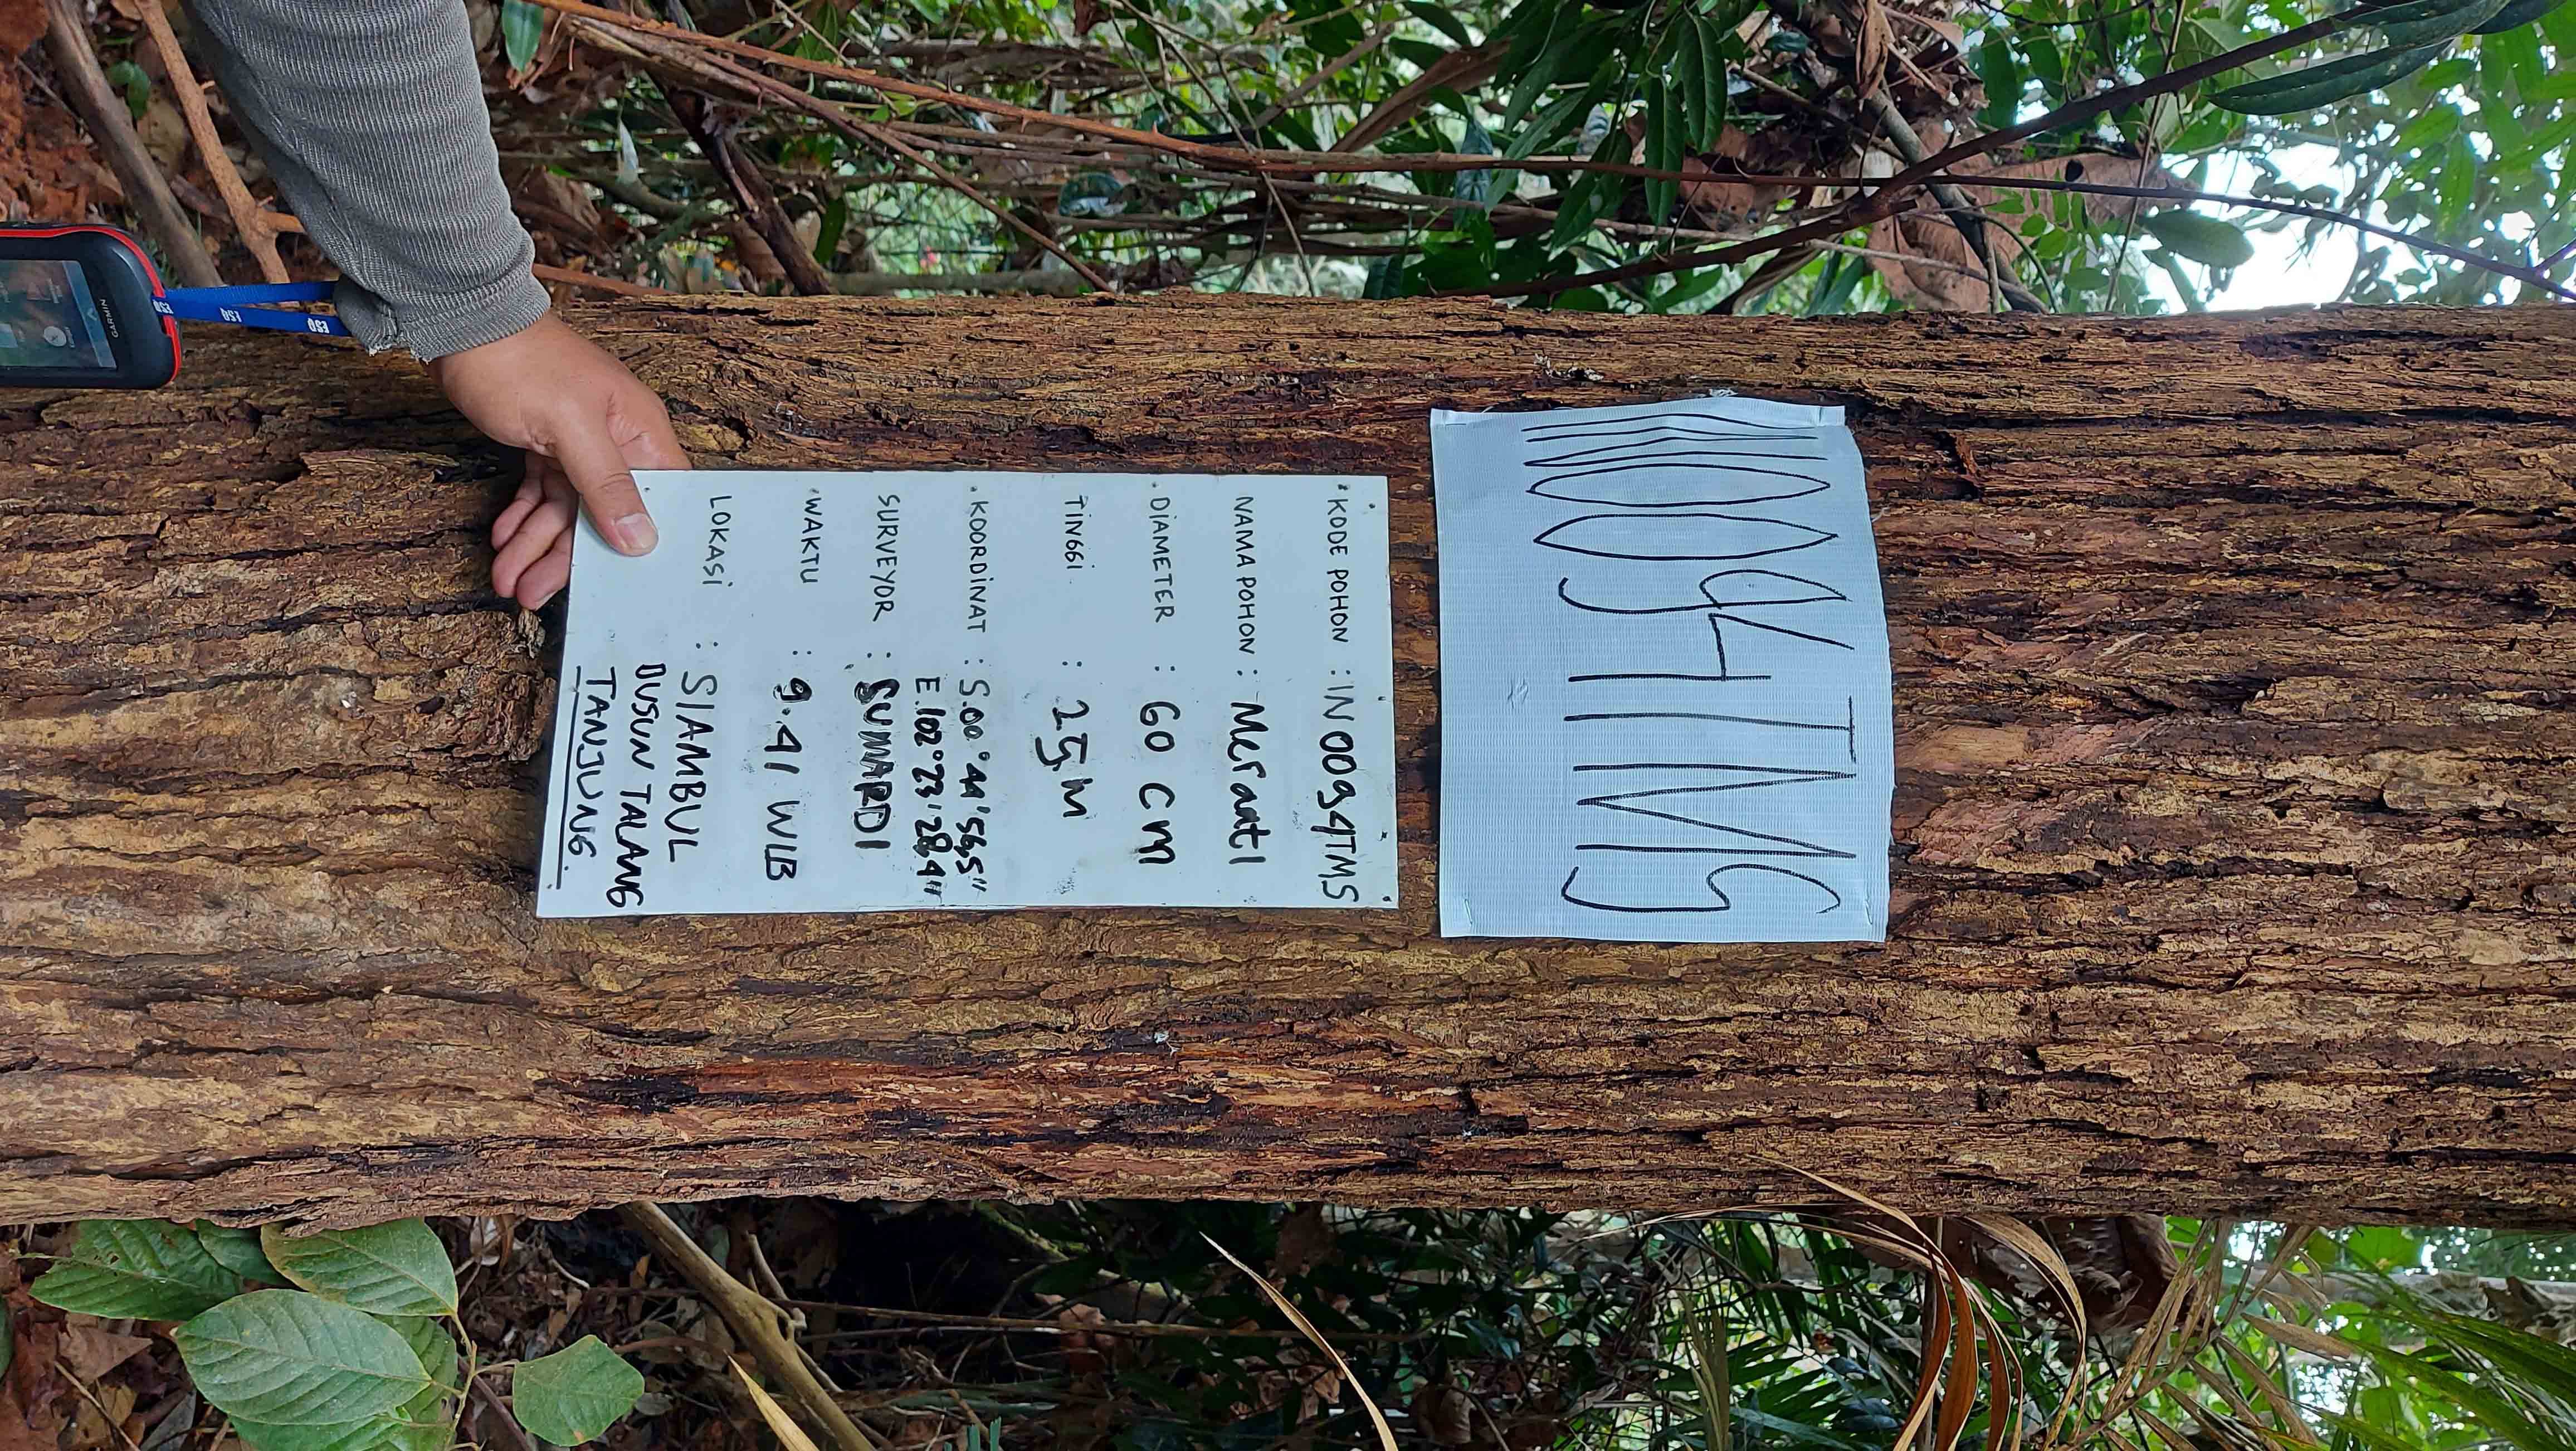 IN0094TMS
KODE POHON : IN0094TMS
NAMA POHON : Meranti
DIAMETER : 60 cm
TINGGI : 25 m
KOORDINAT : S.00°44'56,5"
E.102°23'28,4"
SURVEYOR : SUMARDI
WAKTU : 9.41 WIB
LOKASI : SIAMBUL
DUSUN TALANG
TANJUNG.
GARMIN